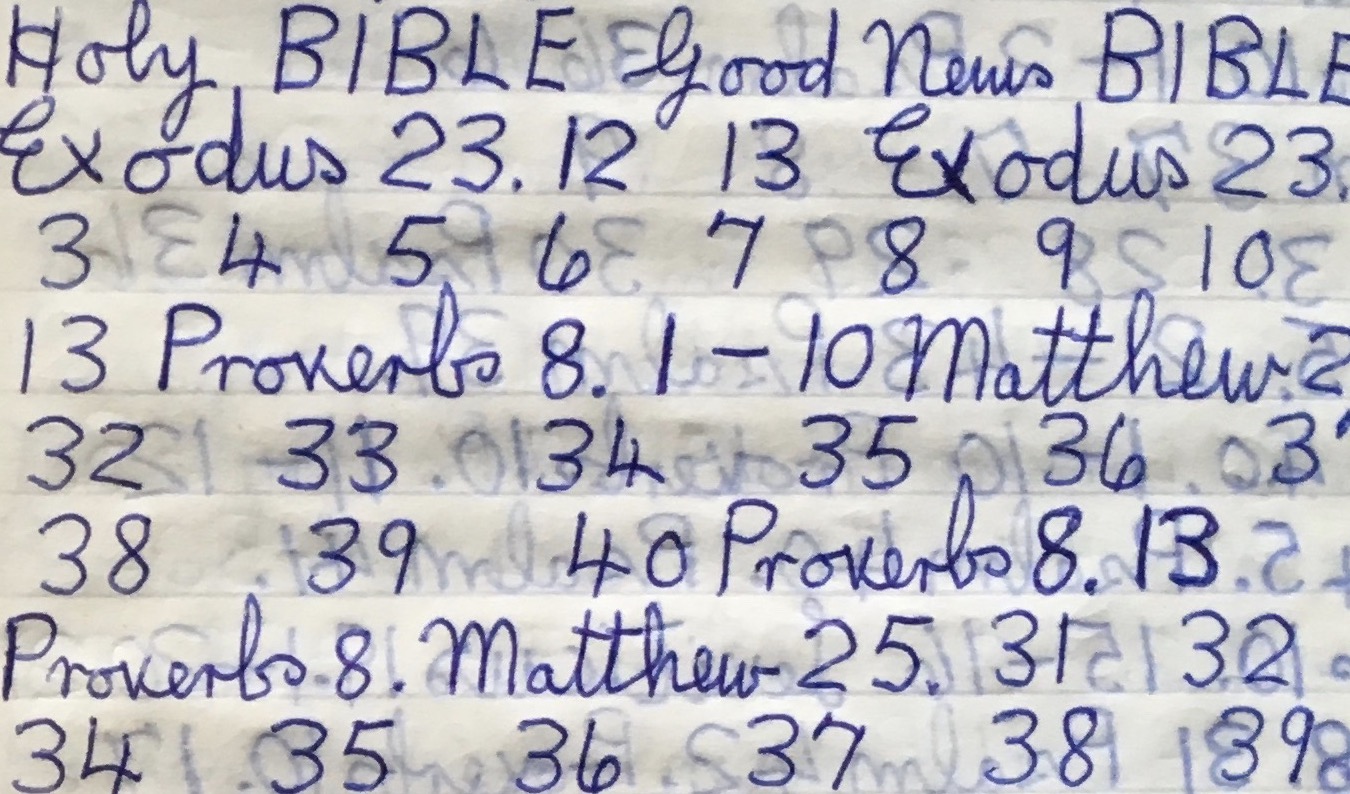 Holy BIBLE Good News BIBLE
Exodus 23. 12 13 Exodus 23.
3 4 5 6 7 8 9 10
13 Proverbs 8. 1 - 10 Matthew 2
32 33 34 35 36 3
38 39 40 Proverbs 8. 13
Proverbs 8. Matthew 25. 31 32
34 35 36 37 38 39